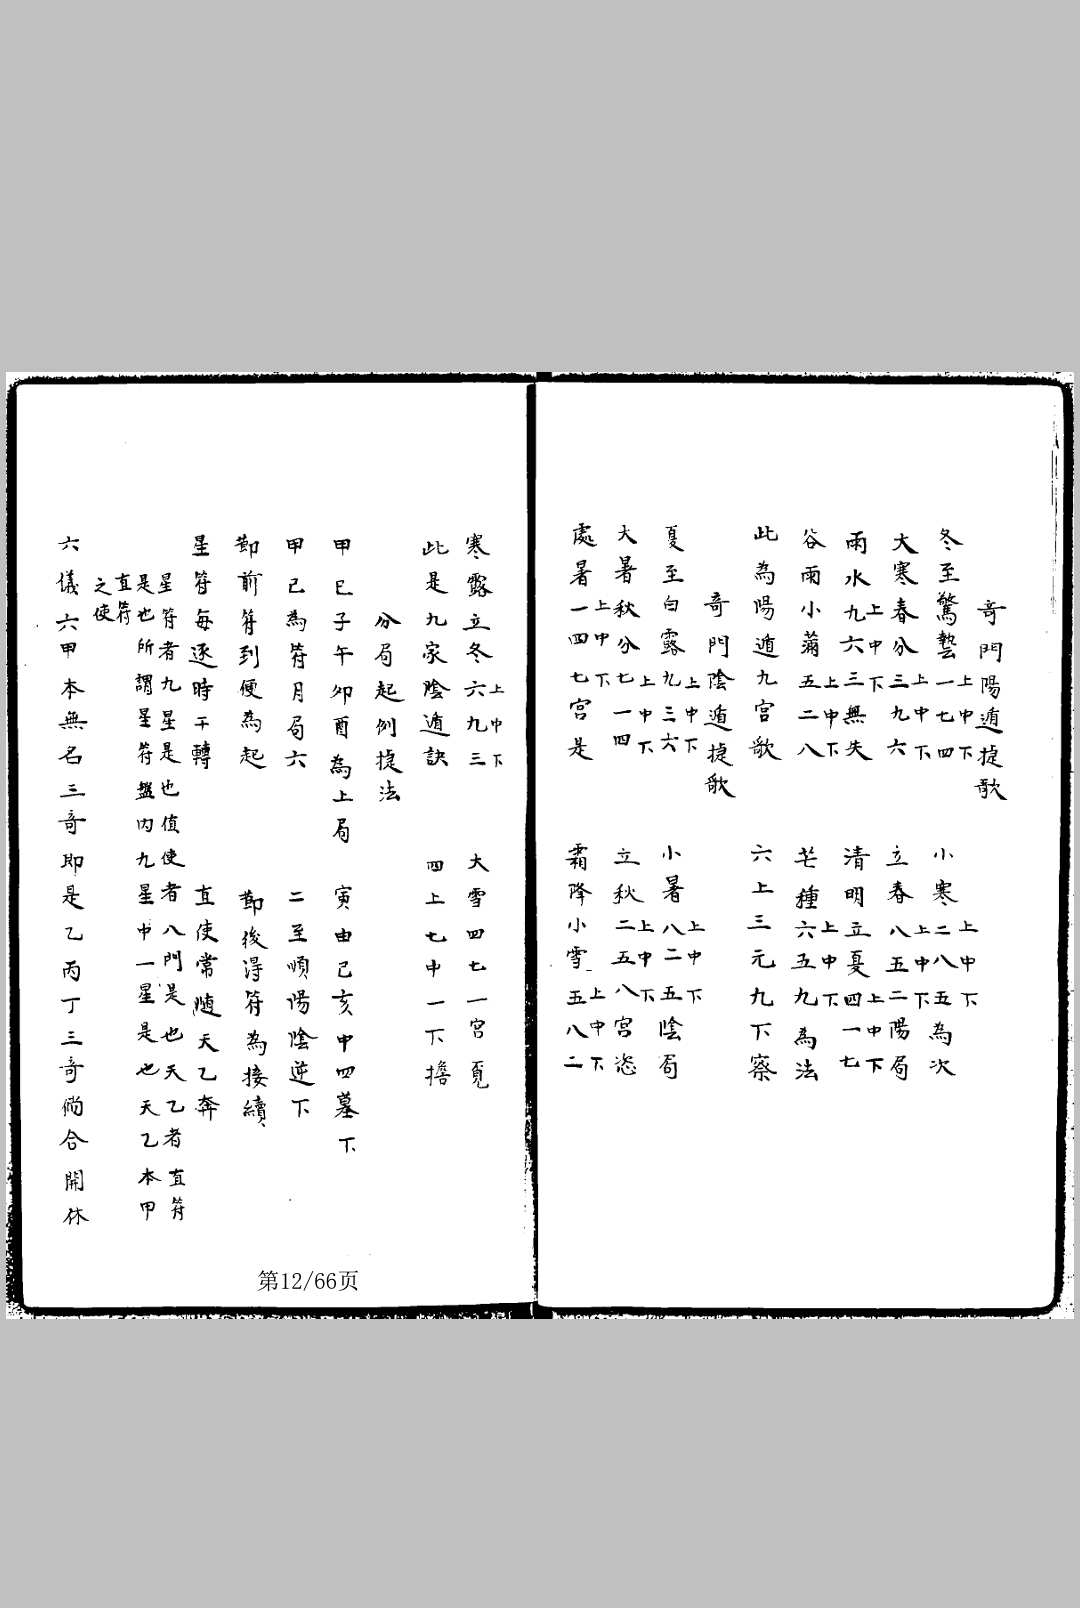 奇門陽遁捷歌
冬至驚蟄一七四 上中下 小寒二八五為次 上中下
大寒春分三九六 上中下 立春八五二陽局 上中下
雨水九六三無失 上中下 清明立夏四一七 上中下
谷雨小滿五二八 上中下 芒種六五九為法 上中下
此為陽遁九宮歌 六上三元九下察
奇門陰遁捷歌
夏至白露九三六 上中下 小暑八二五陰局 上中下
大暑秋分七一四 上中下 立秋二五八宮恣 上中下
處暑一四七宮是 上中下 霜降小雪五八二 上中下
寒露立冬六九三 上中下 大雪四七一宮覓
此是九家陰遁訣 四上七中一下擔
分局起例捷法
甲巳子午卯酉為上局 寅由己亥中四墓下
甲己為符月局六 二至順陽陰逆下
節前符到便為起 節後淂符為接續
星符每逐時干轉 直使常随天乙奔
星符者九星是也值使者八門是也天乙者直符
是也所謂星符盤内九星中一星是也天乙本甲
直符
之使
六儀六甲本無名三奇即是乙丙丁三奇倘合開休
第12/66页